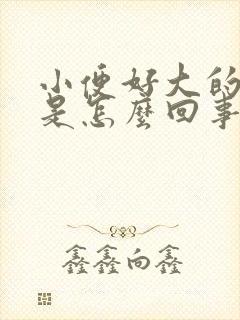 小便好大的
是怎麼回事
鑫鑫向鑫